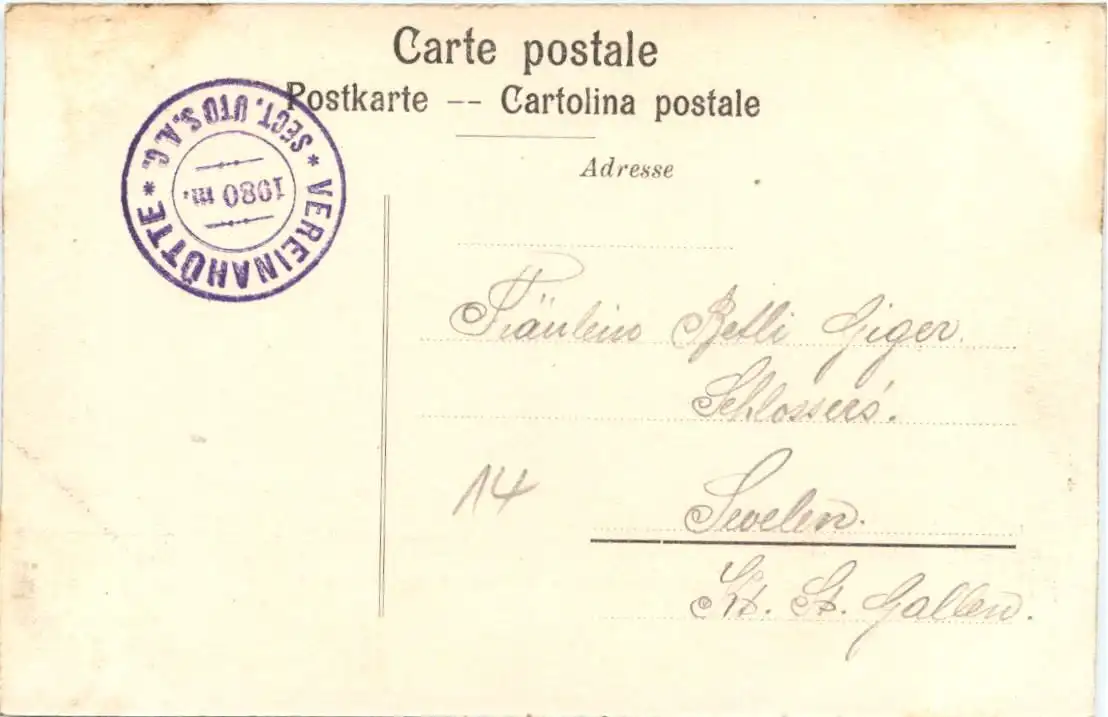 Carte postale
Postkarte -- Cartolina postale
Adresse
* VEREINAHÜTTE *
SECT. UTO S.A.C.
1980 m.
Fräulein Betli Giger.
Schlossers.
Sevelen.
14
Kt. St. Gallen.